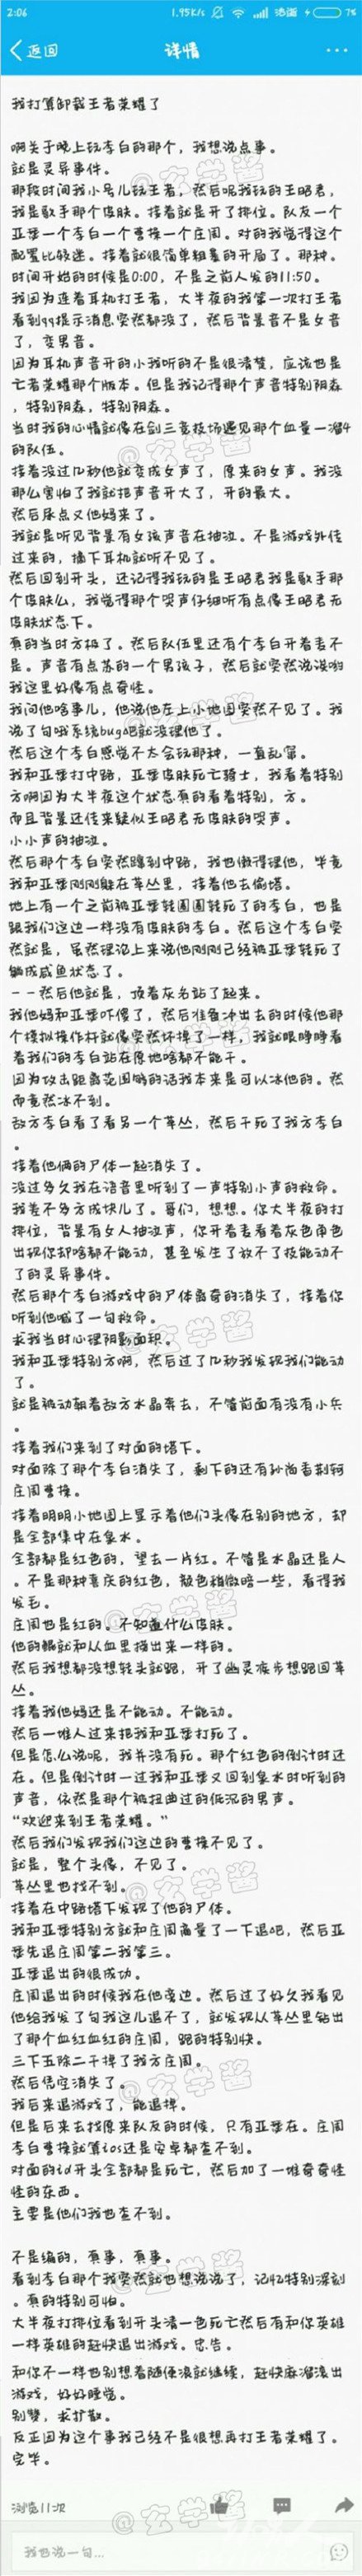 2:06
1.95K/s
7%
返回
详情
我打算卸载王者荣耀了
啊关于晚上玩李白的那个，我想说点事。
就是灵异事件。
那段时间我小号儿玩王者，然后呢我玩的王昭君，
我是歌手那个皮肤。接着就是开了排位。队友一个
亚瑟一个李白一个曹操一个庄周。对的我觉得这个
配置比较迷。接着就很简单粗暴的开局了。那种。
时间开始的时候是0:00，不是之前人发的11:50。
我因为连着耳机打王者，大半夜的我第一次打王者
看到qq提示消息突然都没了，然后背景音不是女音
了，变男音。
因为耳机声音开的小我听的不是很清楚，应该也是
亡者荣耀那个版本。但是我记得那个声音特别阴森
，特别阴森，特别阴森。
当时我的心情就像在剑三竞技场遇见那个血量一溜4
的队伍。
接着没过几秒他就变成女声了，原来的女声。我没
那么害怕了我就把声音开大了，开的最大。
然后尿点又他妈来了。
我就是听见背景有女孩声音在抽泣。不是游戏外传
过来的，摘下耳机就听不见了。
然后回到开头，还记得我玩的是王昭君我是歌手那
个皮肤么，我觉得那个哭声仔细听有点像王昭君无
皮肤状态下。
真的当时方极了。然后队伍里还有个李白开着麦不
是。声音有点苏的一个男孩子，然后就突然说诶哟
我这里好像有点奇怪。
我问他啥事儿，他说他左上小地图突然不见了。我
说了句哦系统bug吧就没理他了。
然后这个李白感觉不太会玩那种，一直乱窜。
我和亚瑟打中路，亚瑟皮肤死亡骑士，我看着特别
方啊因为大半夜这个状态真的看着特别，方。
而且背景还传来疑似王昭君无皮肤的哭声。
小小声的抽泣。
然后那个李白突然蹿到中路，我也懒得理他，毕竟
我和亚瑟刚刚躲在草丛里，接着他去偷塔。
地上有一个之前被亚瑟转圈圈转死了的李白，也是
跟我们这边一样没有皮肤的李白。然后这个李白突
然就是，虽然理论上来说他刚刚已经被亚瑟转死了
躺成咸鱼状态了。
--然后他就是，顶着灰名站了起来。
我他妈和亚瑟吓傻了，然后准备冲出去的时候他那
个模拟操作杆就像突然坏掉了一样，我就眼睁睁看
着我们的李白站在原地啥都不能干。
因为攻击距离范围够的话我本来是可以冰他的。然
而竟然冰不到。
敌方李白看了看另一个草丛，然后干死了我方李白
。
接着他俩的尸体一起消失了。
没过多久我在语音里听到了一声特别小声的救命。
我差不多方成块儿了。哥们，想想。你大半夜的打
排位，背景有女人抽泣声，你开着麦看着灰色角色
出现你却啥都不能动，甚至发生了放不了技能动不
了的灵异事件。
然后那个李白游戏中的尸体离奇的消失了，接着你
听到他喊了一句救命。
求我当时心理阴影面积。
我和亚瑟特别方啊，然后过了几秒我发现我们能动
了。
就是被动朝着敌方水晶奔去，不管前面有没有小兵
。
接着我们来到了对面的塔下。
对面除了那个李白消失了，剩下的还有孙尚香荆轲
庄周曹操。
接着明明小地图上显示着他们头像在别的地方，却
是全部集中在泉水。
全部都是红色的，望去一片红。不管是水晶还是人
。不是那种喜庆的红色，颜色稍微暗一些，看得我
发毛。
庄周也是红的。不知道什么皮肤。
他的鲲就和从血里捞出来一样的。
然后我想都没想转头就跑，开了幽灵疾步想跑回草
丛。
接着我他妈还是不能动。不能动。
然后一堆人过来把我和亚瑟打死了。
但是怎么说呢，我并没有死。那个红色的倒计时还
在。但是倒计时一过我和亚瑟又回到泉水时听到的
声音，依然是那个被扭曲过的低沉的男声。
“欢迎来到王者荣耀。”
然后我们发现我们这边的曹操不见了。
就是，整个头像，不见了。
草丛里也找不到。
接着在中路塔下发现了他的尸体。
我和亚瑟特别方就和庄周商量了一下退吧，然后亚
瑟先退庄周第二我第三。
亚瑟退出的很成功。
庄周退出的时候我在他旁边。然后过了好久我看见
他给我发了句我这儿退不了，就发现从草丛里钻出
了那个血红血红的庄周，跑的特别快。
三下五除二干掉了我方庄周。
然后凭空消失了。
我后来退游戏了，能退掉。
但是后来去找原来队友的时候，只有亚瑟在。庄周
李白曹操就算ios还是安卓都查不到。
对面的id开头全部都是死亡，然后加了一堆奇奇怪
怪的东西。
主要是他们我也查不到。
不是编的，真事，真事。
看到李白那个我突然就也想说说了，记忆特别深刻
。真的特别可怕。
大半夜打排位看到开头清一色死亡然后有和你英雄
一样英雄的赶快退出游戏。忠告。
和你不一样也别想着随便浪就继续，赶快麻溜滚出
游戏，好好睡觉。
别赞，求扩散。
反正因为这个事我已经不是很想再打王者荣耀了。
完毕。
浏览11次
我也说一句...
@玄学酱